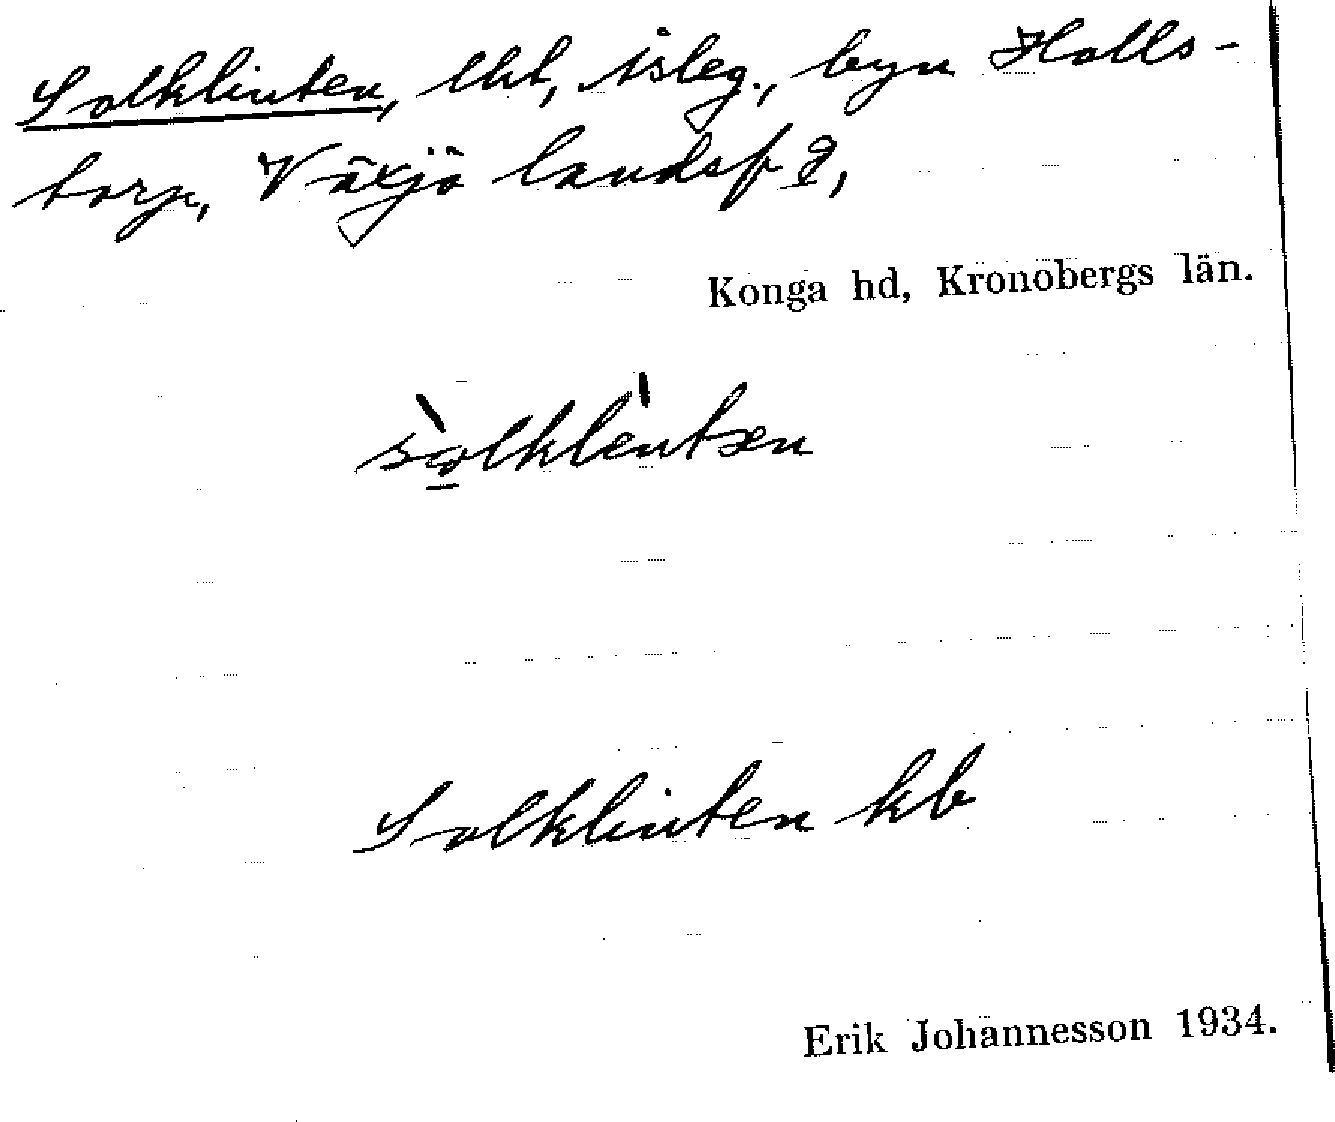 Solklinten, lht, isleg., byn Halls-
torp, Växjö landsf
Konga hd, Kronobergs län.
Solklinten kb
Erik Johannesson 1934.